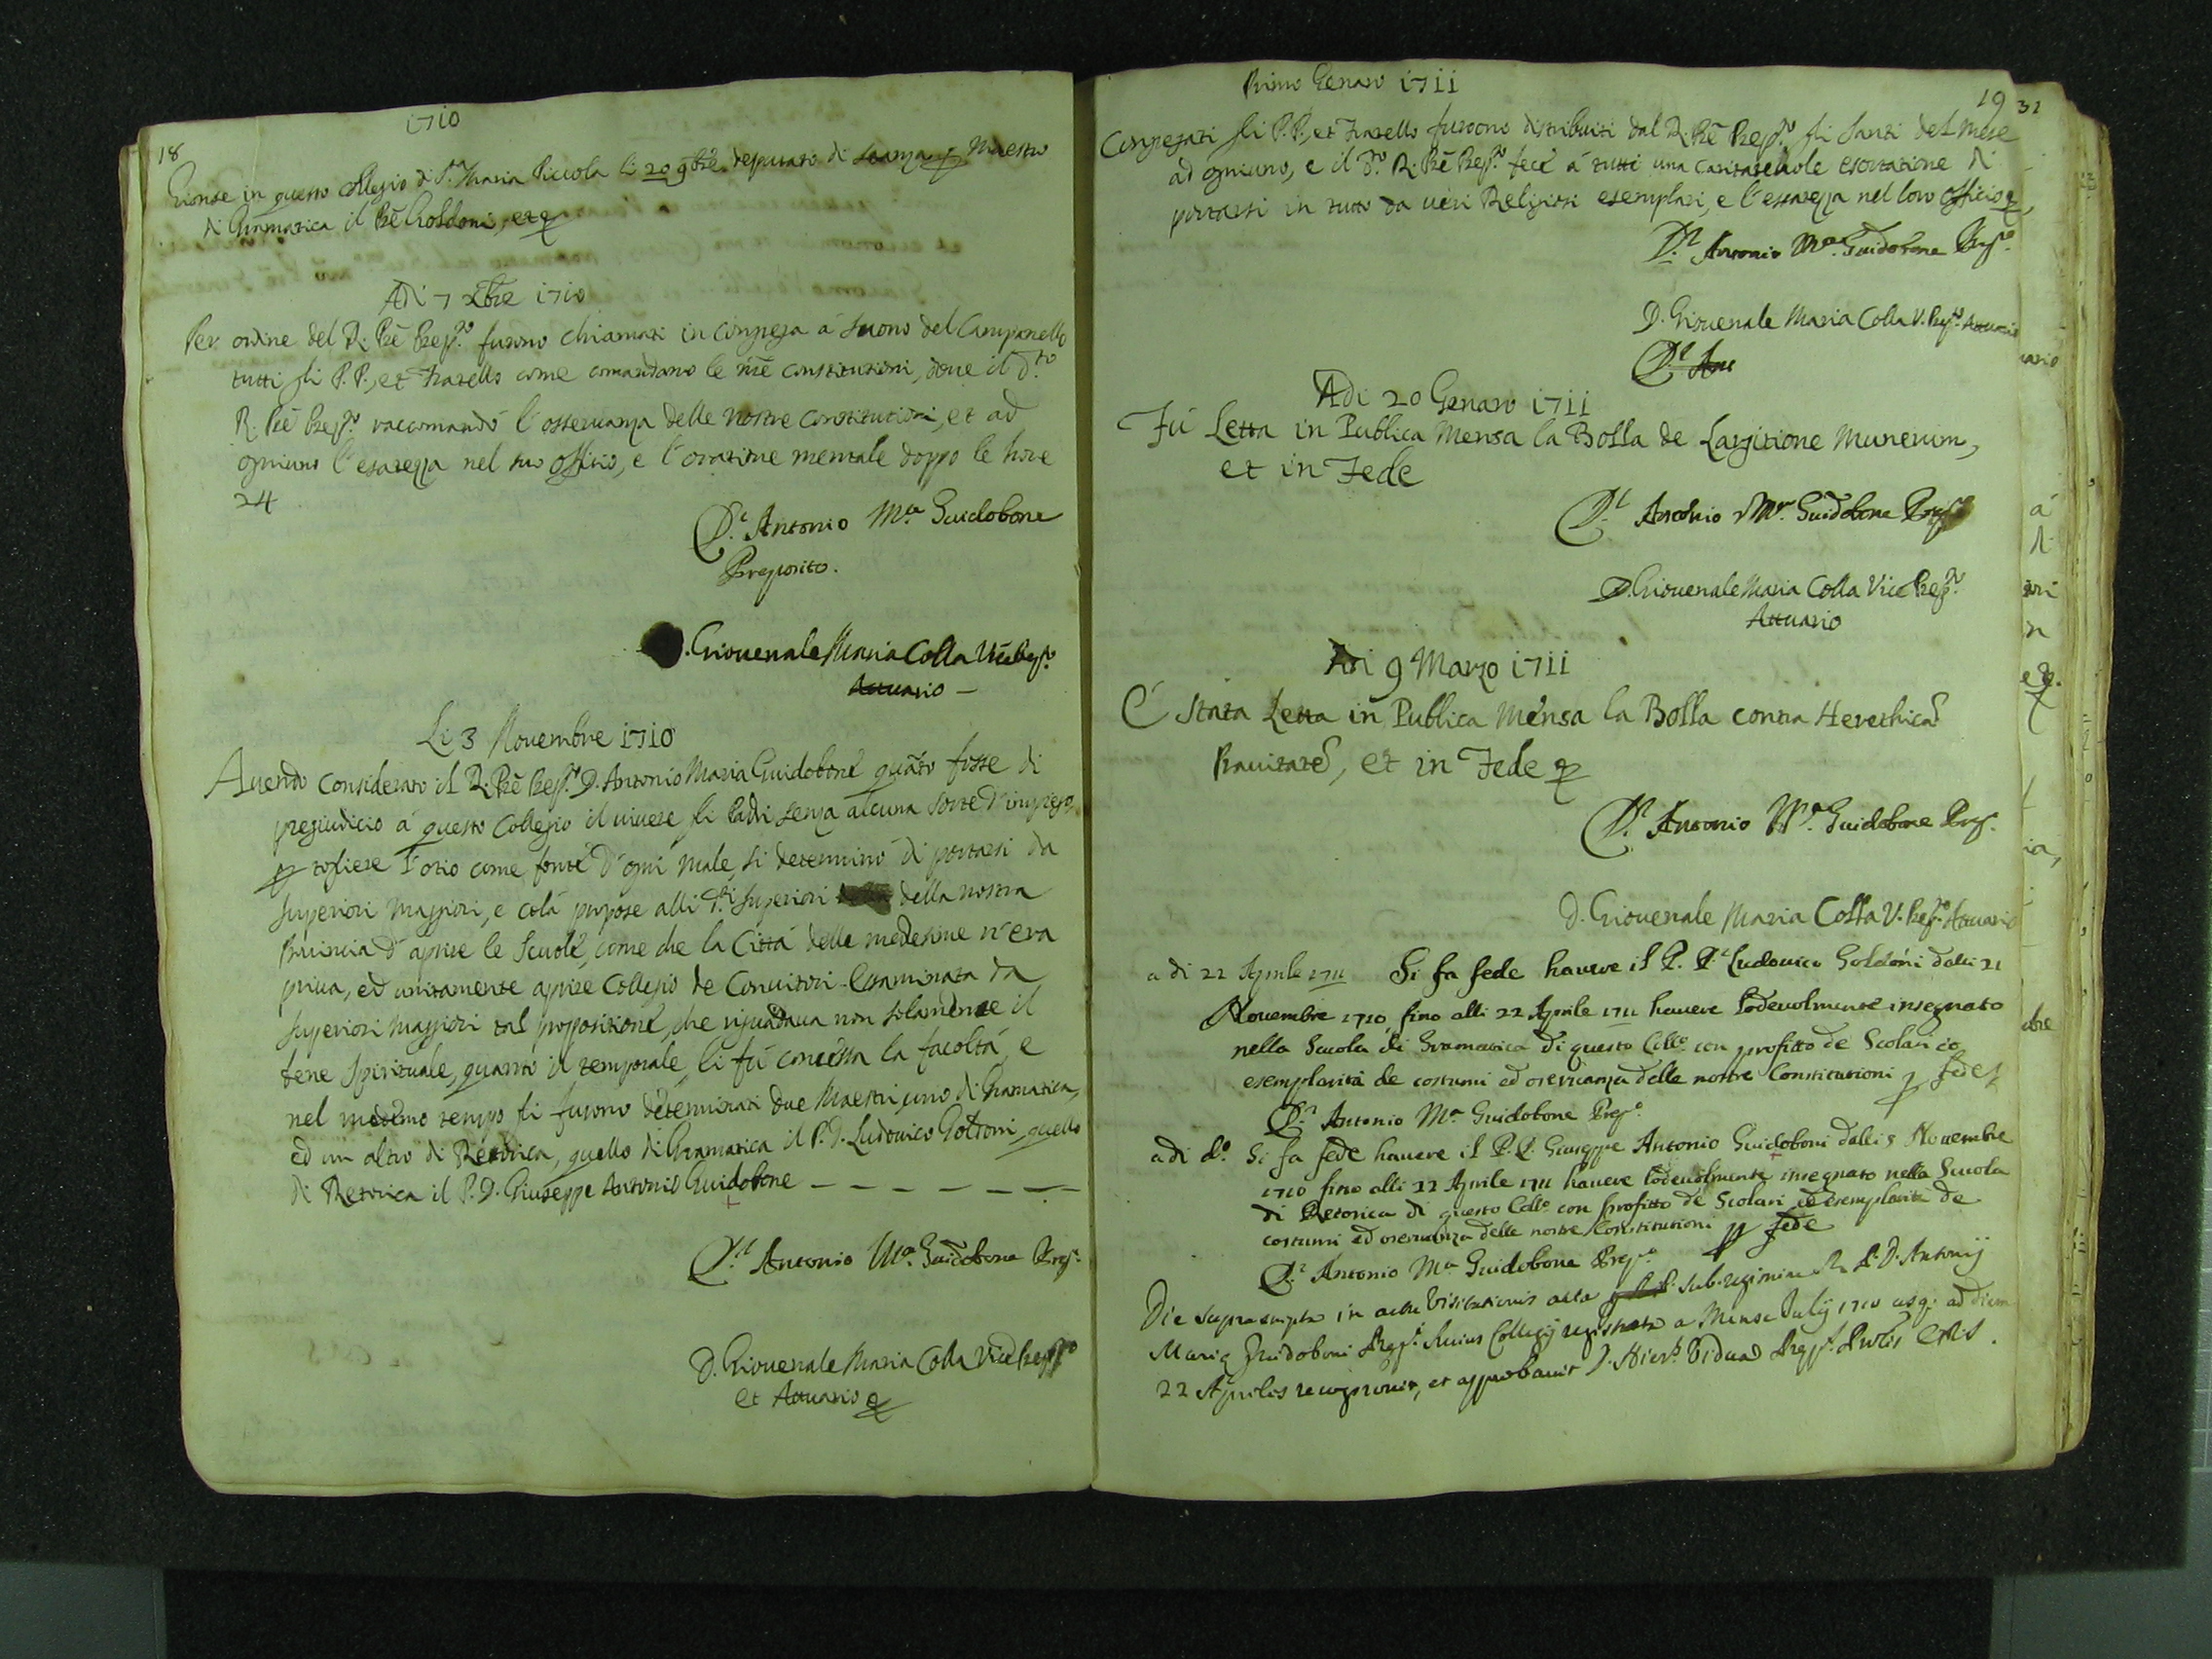 18
1710
Gionse in questo Collegio di S.ta Maria Piccola li 20 9bre deputato di stanza p Maestro
di Gramatica il Prē Goldoni, etq
Adi 7 xbre 1710
Per ordine del R. Prē Prep.to furono chiamati in congrega á suono del Campanello
tutti gli P.P., et Fratello come comandano le nrē constitutioni, doue il d.to
R. Prē Prep.to raccomandó l'osseruanza delle nostre constitutioni, et ad
ogniuno l'esatezza nel suo offitio, e l'oratione mentale doppo le hore
24
D. Antonio M.a Guidobone
Preposito.
D. Giouenale Maria Colla Vice Prep.to
Attuario —
Li 3 Nouembre 1710
Auendo considerato il R. Prē Prep.to D. Antonio Maria Guidobone quāto fosse di
pregiudicio á questo Collegio il uiuere gli Padri senza alcuna sorte d'impiego,
p togliere l'otio come fonte d'ogni male, si determinó di portarsi da
superiori maggiori, e colá propose alli d.ti superiori della nostra
Prouincia d'aprire le scuole, come che la Cittá delle medesime n'era
priua, ed unitamente aprire Collegio de Conuitori. Esaminata da
superiori maggiori tal propositione, che riguardaua non solamente il
bene spirituale, quanto il temporale, li fú concessa la facoltá, e
nel medemo tempo li furono determinati due Maestri, uno di Gramatica,
ed un altro di Retorica, quello di Gramatica il P. D. Ludouico Goldoni, quello
di Retorica il P. D. Giuseppe Antonio Guidobone — — — — — —
D. Antonio M.a Guidobone Prep.to
D. Giouenale Maria Colla Vice Prep.to
et Attuario q
Primo Genaro 1711
19
32
Congregati gli P.P., et Fratello furono distribuiti dal R. Prē Prep.to gli Santi del mese
ad ogniuno, e il d.to R. Prē Prep.to fece á tutti una caritateuole esortatione di
portarsi in tutto da ueri Religiosi esemplari, e l'esatezza nel loro officio q,
D. Antonio M.a Guidobone Prep.to
D. Giouenale Maria Colla V. Prep.to Attuario
D. Ant
Adi 20 Genaro 1711
Fú Letta in Publica Mensa la Bolla de Largitione Munerum,
et in Fede
D. Antonio M.a Guidobone Prep.to
D. Giouenale Maria Colla Vice Prep.to
Attuario
Adi 9 Marzo 1711
É Stata Letta in Publica Mensa la Bolla contra Herethicā
Prauitatē, et in Fede q
D. Antonio M.a Guidobone Prep.
D. Giouenale Maria Colla V. Prep.to Attuario
a di 22 Aprile 1711 Si fa fede hauere il P. D. Ludouico Goldoni dalli 21
Nouembre 1710 fino alli 22 Aprile 1711 hauere lodeuolmente insegnato
nella Scuola di Gramatica di questo Coll.o con profitto de Scolari cō
esemplaritá de costumi ed oseruanza delle nostre Constitutioni p fede
D. Antonio M.a Guidobone Prep.o
adi d.o Si fa fede hauere il P. D. Giuseppe Antonio Guidoboni dalli 5 Nouembre
1710 fino alli 22 Aprile 1711 hauere lodeuolmente insegnato nella Scuola
di Retorica di questo Coll.o con profitto de Scolari ed esemplaritá de
costumi ed oseruanza delle nostre Constitutioni p fede
D. Antonio M.a Guidobone Prep.o
Die suprascripta in actu Visitationis acta sub regimine R. P. D. Antonij
Marię Guidoboni Prep.ti huius Collegij registrata a Mense Julij 1710 usq; ad diem
22 Aprilis recognouit, et approbauit D. Vidua Prep.